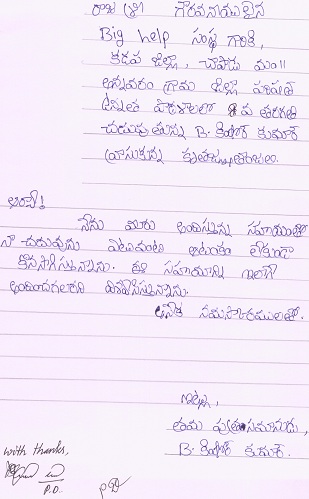 రాజశ్రీ గౌరవనీయులైన
Big help సంస్థ గారికి,
కడప జిల్లా, చాపాడు మం॥
అన్నవరం గ్రామ జిల్లా పరిషత్
ఉన్నత పాఠశాలలో 8 వ తరగతి
చదువుతున్న B. కిషోర్ కుమార్
వ్రాసుకున్న కృతజ్ఞతాంజలి.
అయ్యా!
నేను మీరు అందిస్తున్న సహాయంతో
నా చదువును ఎటువంటి ఆటంకం లేకుండా
కొనసాగిస్తున్నాను. ఈ సహాయాన్ని ఇలాగే
అందించగలరని విశ్వసిస్తున్నాను.
నమస్కారములతో.
ఇట్లు,
తమ పుత్రసమానుడు,
B. కిషోర్ కుమార్.
with thanks,
P.D.